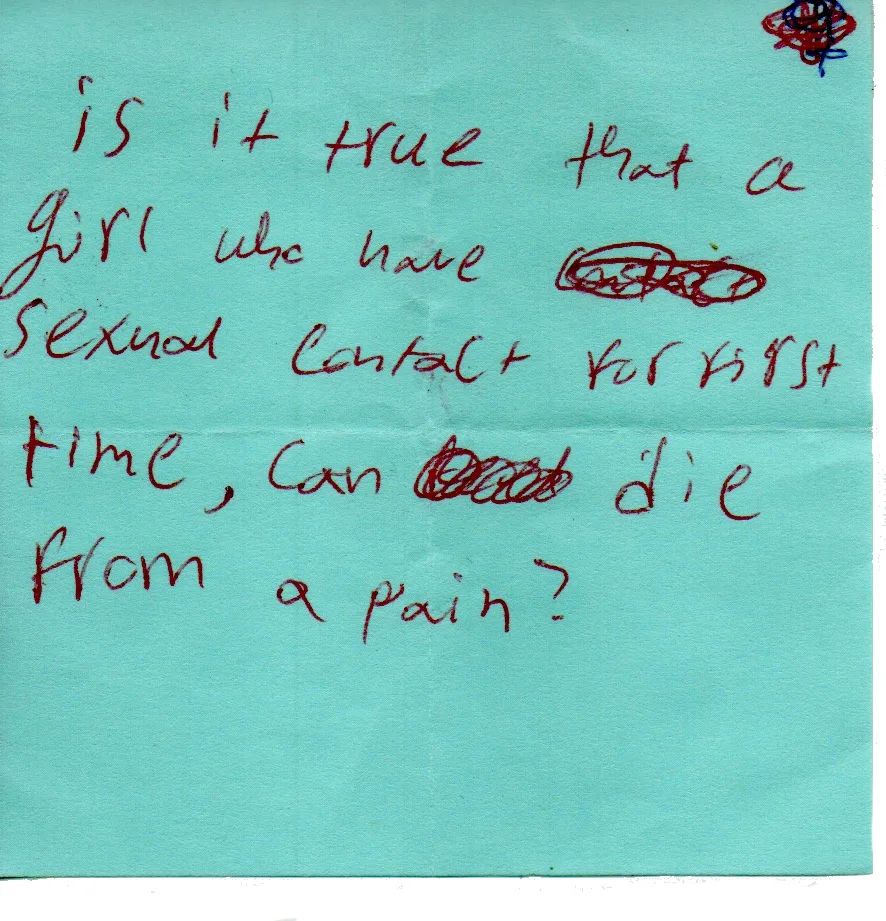 is it true that a
girl who have
sexual contact for first
time, can die
from a pain?